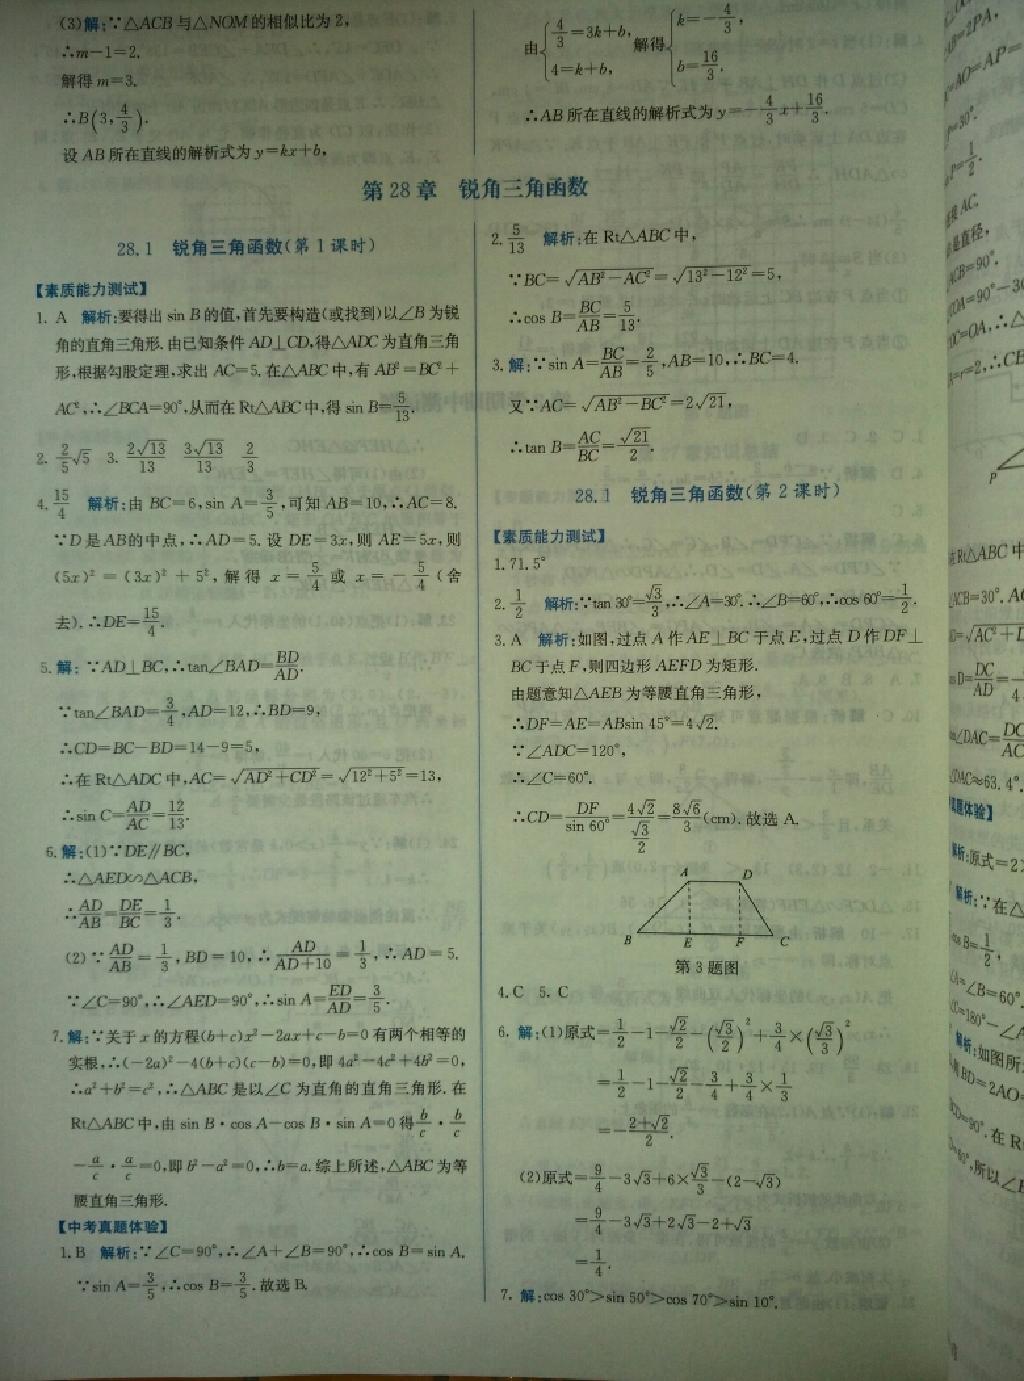 (3)解:∵△ACB与△NOM的相似比为2,
∴m-1=2.
解得m=3.
∴B(3,4/3).
设AB所在直线的解析式为y=kx+b,
由{4/3=3k+b, 4=k+b, 解得{k=-4/3, b=16/3.
∴AB所在直线的解析式为y=-4/3x+16/3.
第28章 锐角三角函数
28.1 锐角三角函数(第1课时)
【素质能力测试】
1. A 解析:要得出sin B的值,首先要构造(或找到)以∠B为锐
角的直角三角形.由已知条件AD⊥CD,得△ADC为直角三角
形,根据勾股定理,求出AC=5.在△ABC中,有AB²=BC²+
AC²,∴∠BCA=90°,从而在Rt△ABC中,得sin B=5/13.
2. 2/5√5 3. 2√13/13 3√13/13 2/3
4. 15/4 解析:由BC=6,sin A=3/5,可知AB=10,∴AC=8.
∵D是AB的中点,∴AD=5.设DE=3x,则AE=5x,则
(5x)²=(3x)²+5²,解得x=5/4或x=-5/4(舍
去).∴DE=15/4.
5. 解:∵AD⊥BC,∴tan∠BAD=BD/AD.
∵tan∠BAD=3/4,AD=12,∴BD=9,
∴CD=BC-BD=14-9=5,
∴在Rt△ADC中,AC=√AD²+CD²=√12²+5²=13,
∴sin C=AD/AC=12/13.
6. 解:(1)∵DE∥BC,
∴△AED∽△ACB,
∴AD/AB=DE/BC=1/3.
(2)∵AD/AB=1/3,BD=10,∴AD/AD+10=1/3,∴AD=5.
∵∠C=90°,∴∠AED=90°,∴sin A=ED/AD=3/5.
7. 解:∵关于x的方程(b+c)x²-2ax+c-b=0有两个相等的
实根,∴(-2a)²-4(b+c)(c-b)=0,即4a²-4c²+4b²=0,
∴a²+b²=c²,∴△ABC是以∠C为直角的直角三角形.在
Rt△ABC中,由sin B·cos A-cos B·sin A=0得b/c·b/c
-a/c·a/c=0,即b²-a²=0,∴b=a.综上所述,△ABC为等
腰直角三角形.
【中考真题体验】
1. B 解析:∵∠C=90°,∴∠A+∠B=90°,∴cos B=sin A.
∵sin A=3/5,∴cos B=3/5.故选B.
2. 5/13 解析:在Rt△ABC中,
∵BC=√AB²-AC²=√13²-12²=5,
∴cos B=BC/AB=5/13.
3. 解:∵sin A=BC/AB=2/5,AB=10,∴BC=4.
又∵AC=√AB²-BC²=2√21,
∴tan B=AC/BC=√21/2.
28.1 锐角三角函数(第2课时)
【素质能力测试】
1. 71.5°
2. 1/2 解析:∵tan 30°=√3/3,∴∠A=30°.∴∠B=60°,∴cos 60°=1/2.
3. A 解析:如图,过点A作AE⊥BC于点E,过点D作DF⊥
BC于点F,则四边形AEFD为矩形.
由题意知△AEB为等腰直角三角形,
∴DF=AE=ABsin 45°=4√2.
∵∠ADC=120°,
∴∠C=60°.
∴CD=DF/sin 60°=4√2/(√3/2)=8√6/3(cm).故选A.
A D
B E F C
第3题图
4. C 5. C
6. 解:(1)原式=1/2-1-√2/2-(√3/2)²+3/4×(√3/3)²
=1/2-1-√2/2-3/4+3/4×1/3
=-2+√2/2.
(2)原式=9/4-3√3+6×√3/3-(2-√3)
=9/4-3√3+2√3-2+√3
=1/4.
7. 解:cos 30°>sin 50°>cos 70°>sin 10°.